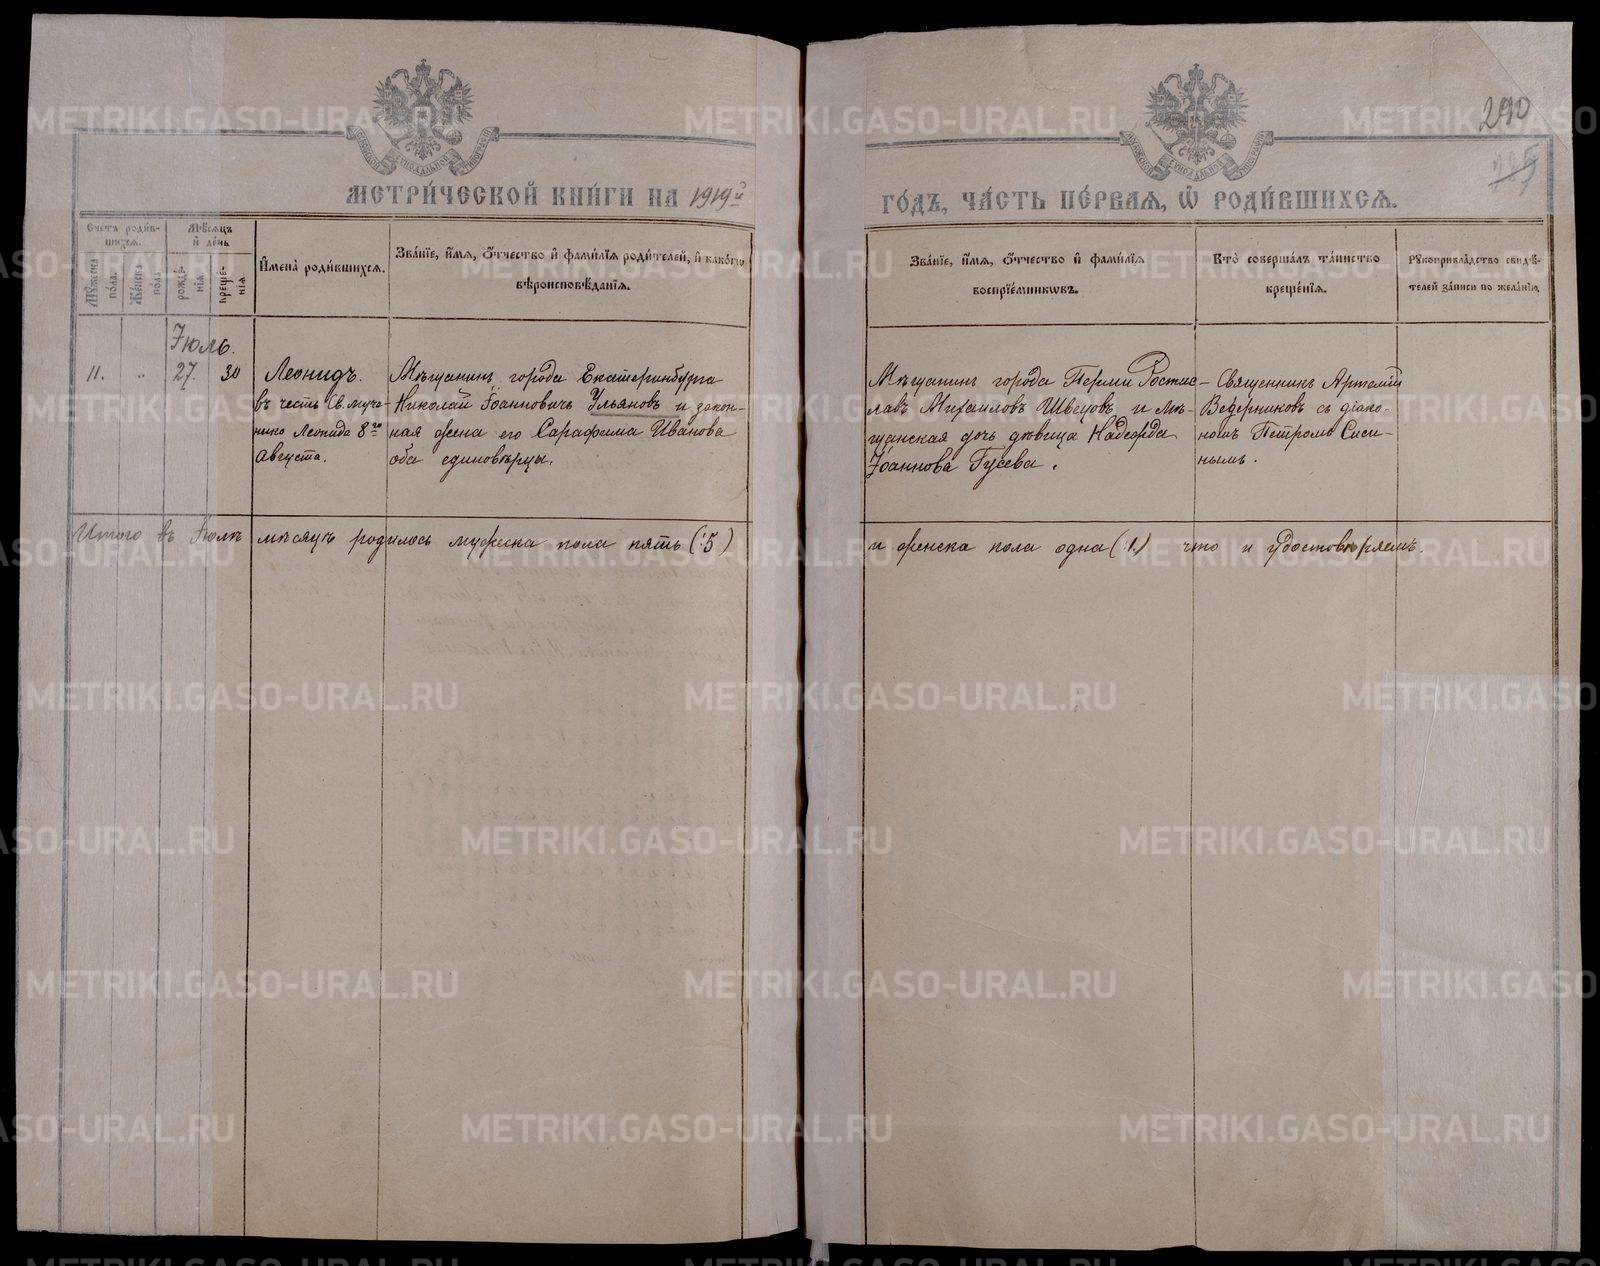 290
МЕТРИ́ЧЕСКОЙ КНИ́ГИ НА 1919й
ГО́ДЪ, ЧА́СТЬ ПЕ́РВАѦ, Ѽ РОДИ́ВШИХСѦ.
Счетъ роди́в-
шихсѧ.
Мѣ́сѧцъ
и҆ де́нь
Мꙋ́жеска
по́ла.
Же́нска
по́ла.
рожде́-
нїѧ.
креще́-
нїѧ.
И҆мена̀ роди́вшихсѧ.
Зва́нїе, и҆́мѧ, ѻ҆́тчество и҆ фами́лїѧ роди́телей, и҆ како́гѡ
вѣроисповѣ́данїѧ.
Зва́нїе, и҆́мѧ, ѻ҆́тчество и҆ фами́лїѧ
воспрїе́мникѡвъ.
Кто̀ соверша́лъ та́инство
креще́нїѧ.
Рꙋкоприкла́дство свидѣ́-
телей за́писи по жела́нїю.
Іюль.
11. „ 27. 30
Леонидъ.
въ честь Св. муче-
ника Леонида 8го
Августа.
Мѣщанинъ города Екатеринбурга
Николай Іоанновичъ Ульяновъ и закон-
ная жена его Сарафима Иванова
оба единовѣрцы.
Мѣщанинъ города Перми Ростис-
лавъ Михаиловъ Швецовъ и мѣ-
щанская дочь дѣвица Надежда
Іоаннова Гусева.
Священникъ Артемій
Ведерниковъ съ діако-
номъ Петромъ Спси-
нымъ.
Итого въ Іюлѣ мѣсяцѣ родилось мужеска пола пять (:5)
и женска пола одна (:1.) что и удостовѣряемъ.
METRIKI.GASO-URAL.RU